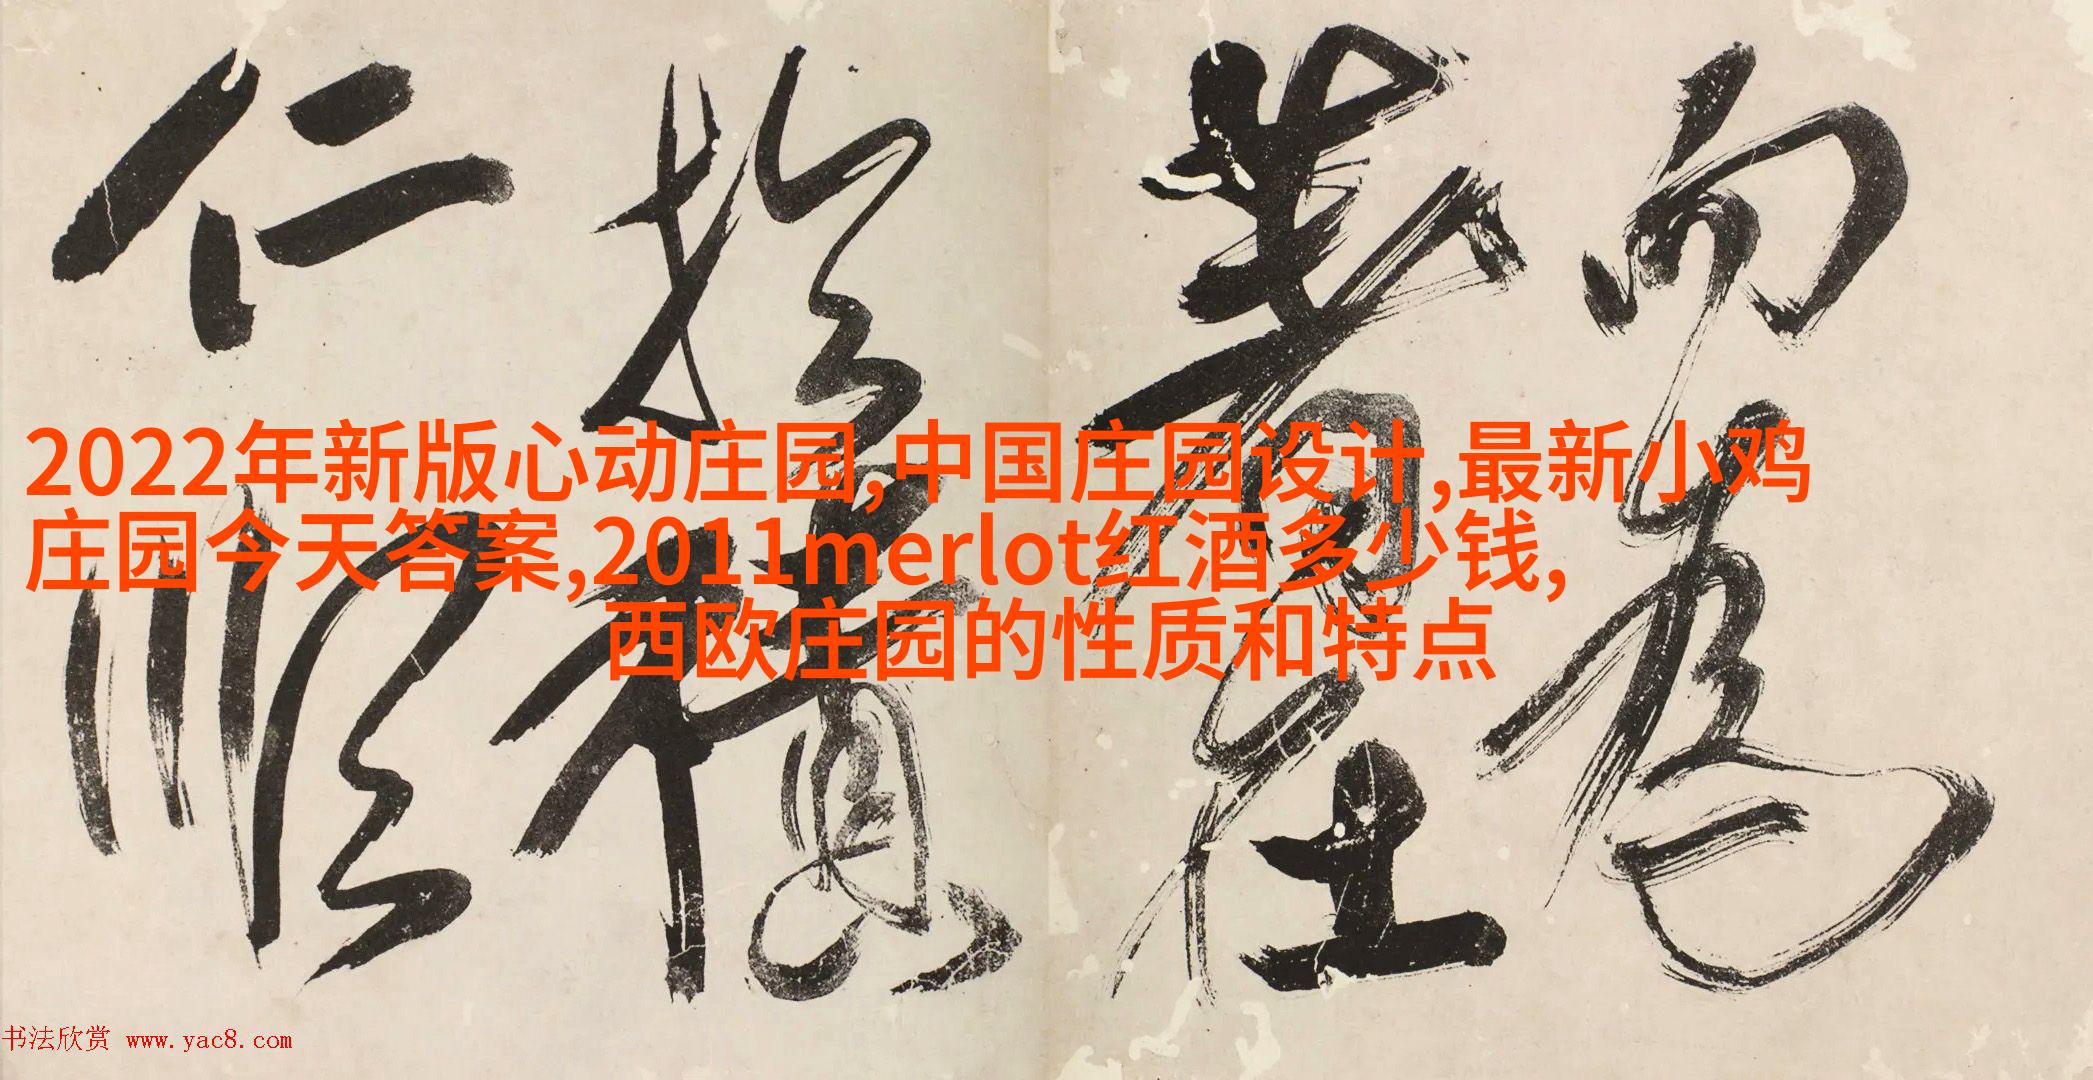 而為
仁順
2022年新版心动庄园,中国庄园设计,最新小鸡
庄园今天答案,2011merlot红酒多少钱,
西欧庄园的性质和特点
书法欣赏 www.yac8.com